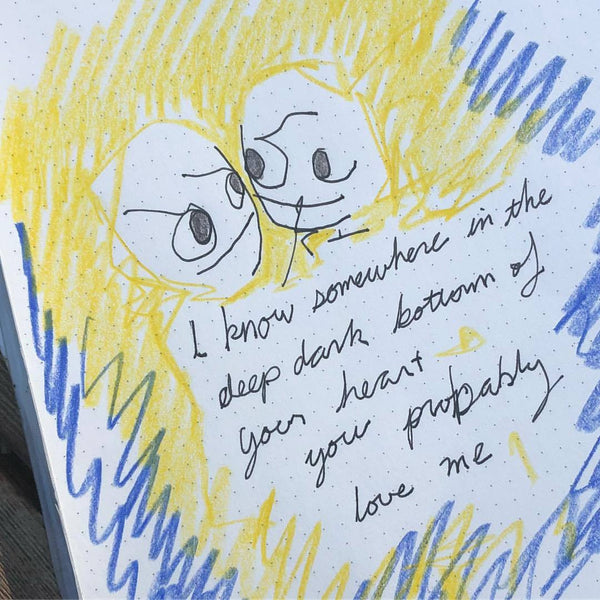 I know somewhere in the
deep dark bottom of
your heart
you probably
love me